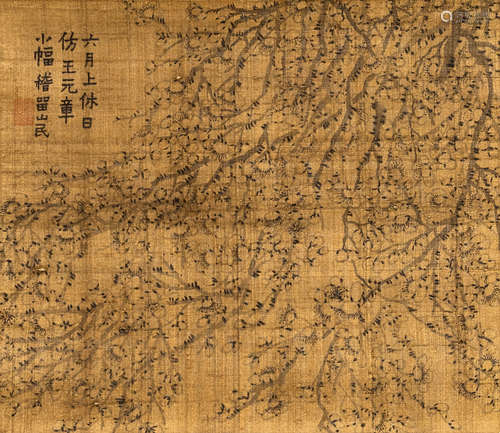 六月上休日
仿王元章
小幅稽留山民